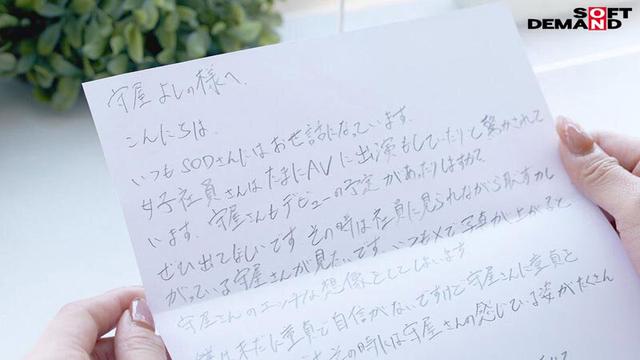 SOFT
DEMAND
守屋よしの様へ
こんにちは、
いつもSODさんにはお世話になっています。
女子社員さんはたまにAVに出演もしていたりと驚かされて
います。守屋さんもデビューの予定があったりはすか
ぜひ出てほしいです。その時は社員に見られながら恥ずかし
がっている守屋さんが見たいです。いつもXで写真が上がると
守屋さんのエッチな想像をしてしまいます
未だに童貞で自信がないですけど守屋さんに童貞を
その時には守屋さんの感じている姿がたくさん